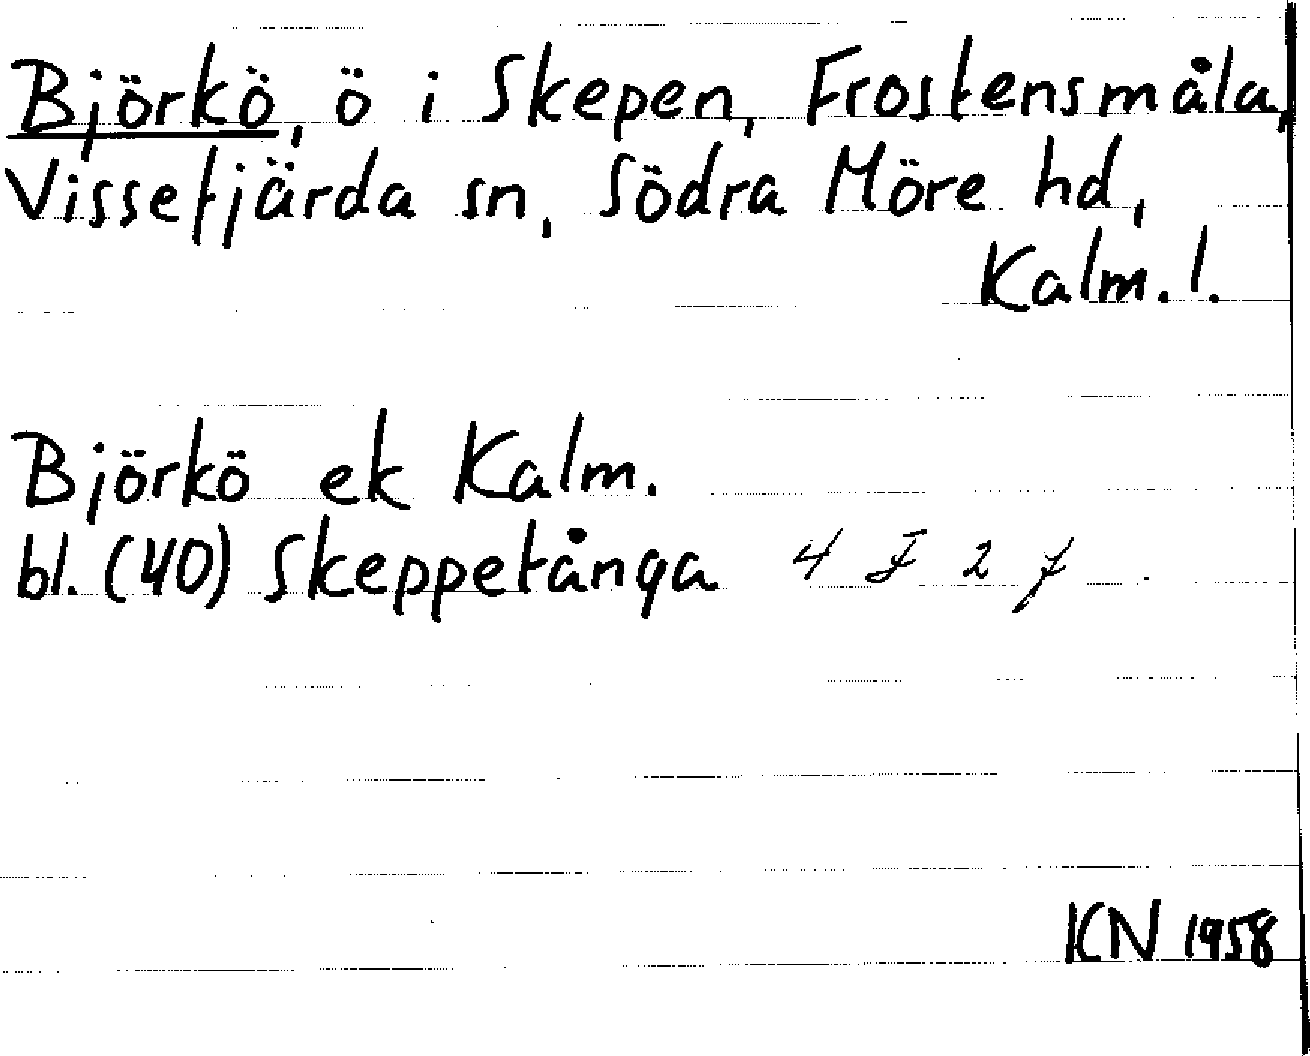 Björkö, ö i Skepen, Frostensmåla,
Vissefjärda sn, Södra Möre hd,
Kalm. l.
Björkö ek Kalm.
bl. (40) Skeppetånga 4 F 2 f
KN 1958